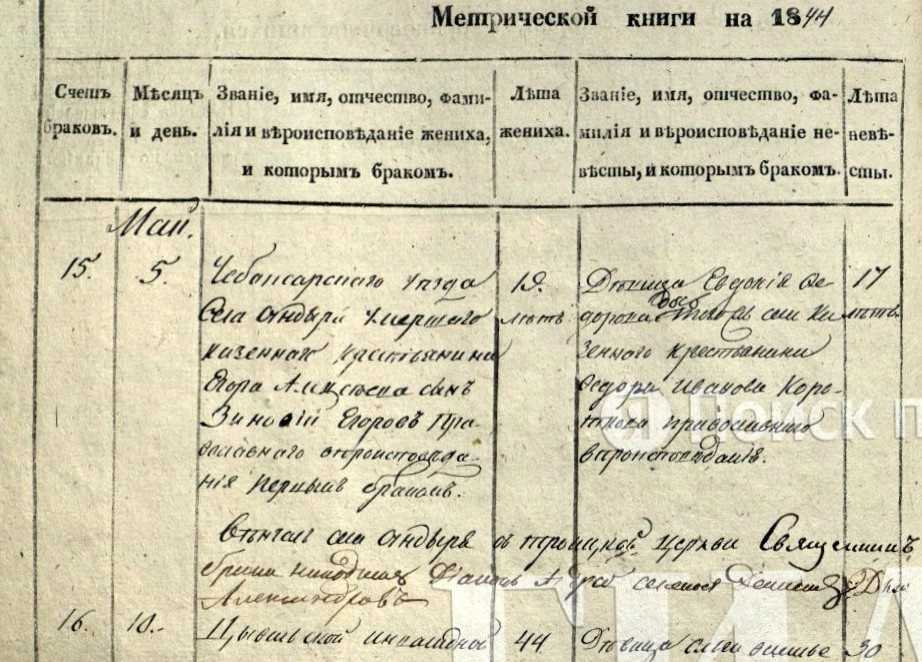 Метрической книги на 1844
Счетъ браковъ.
Мѣсяцъ и день.
Званіе, имя, отчество, фами-
лія и вѣроисповѣданіе жениха,
и которымъ бракомъ.
Лѣта
жениха.
Званіе, имя, отчество, фа-
милія и вѣроисповѣданіе не-
вѣсты, и которымъ бракомъ.
Лѣта
невѣ-
сты.
Маи.
15. 5.
Чебоксарскаго уѣзда
Села Андыри умершаго
казеннаго крестьянина
Егора сынъ
Зиновій Егоровъ Пра-
вославнаго вѣроисповѣда-
нія первымъ бракомъ.
19.
лѣтъ
Дѣвица Евдокія Ѳе-
дорова тогожъ села Ка-
зеннаго крестьянина
Ѳедора Иванова Коро-
ткова православнаго
вѣроисповѣданія.
17
лѣтъ
Вѣнчалъ села Андыри Троицкой Церкви Священникъ
Александровъ
16. 10.
44
Дѣвица
30
Поиск п